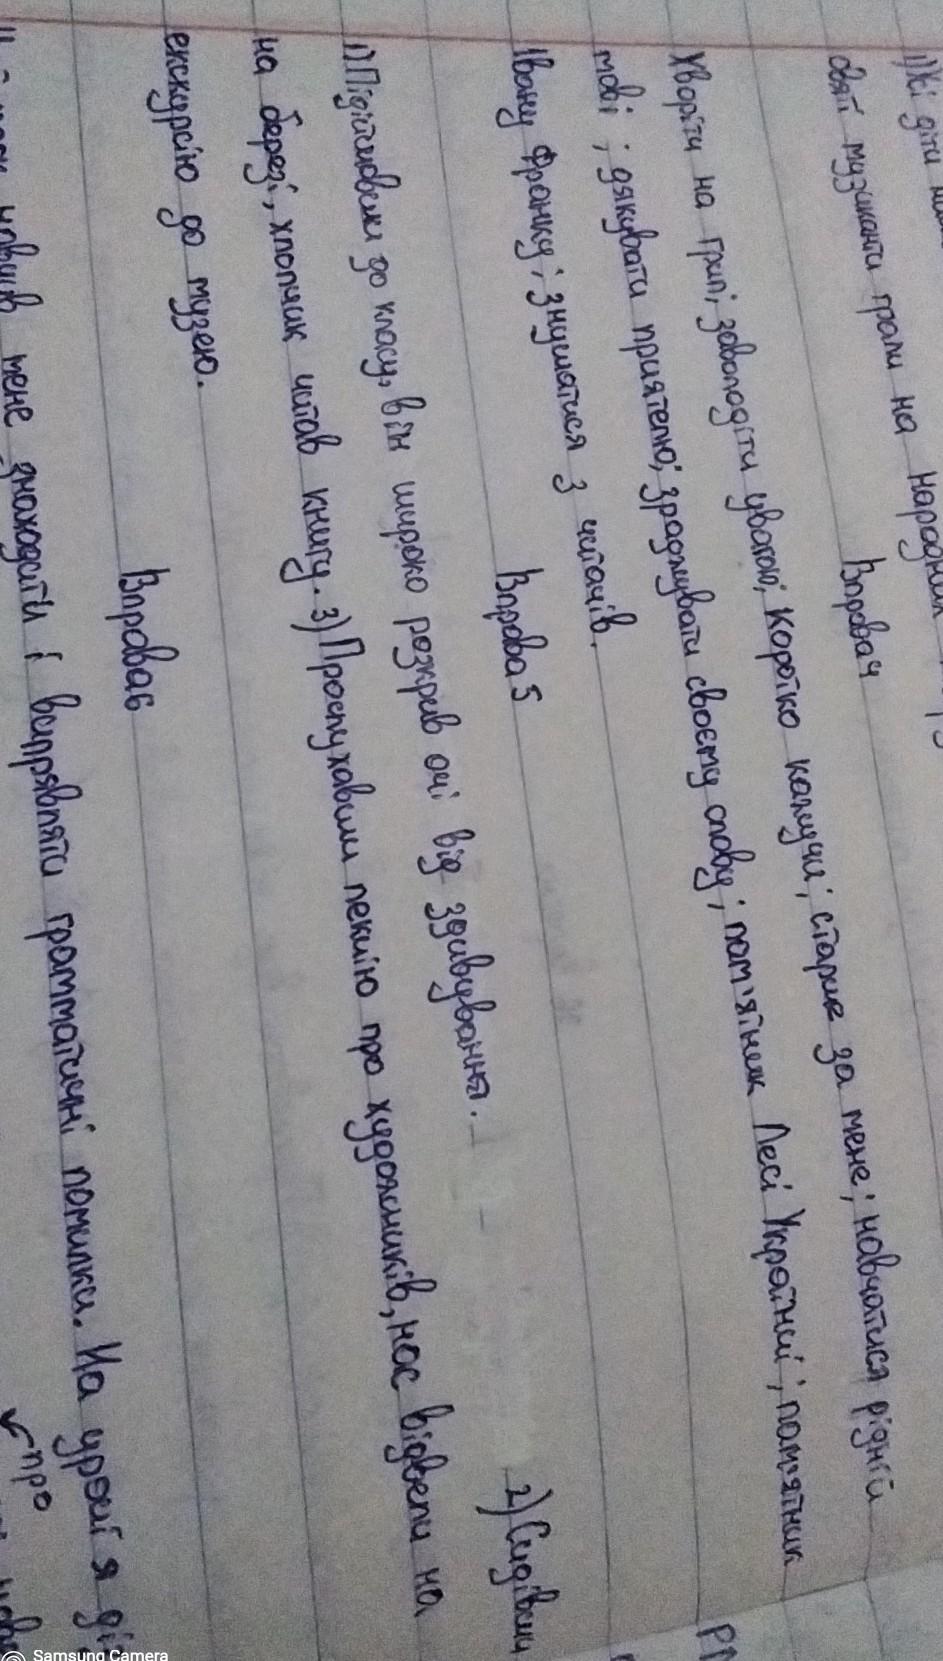 1) Які діти
святі музиканти грали на народних
Вправа 4
Хворіти на грип; заволодіти увагою; коротко кажучи; старше за мене; навчатися рідній
мові; дякувати приятелю; зраджувати своєму слову; пам'ятник Лесі Українці; пам'ятник
Івану Франку; знущатися з читачів.
Вправа 5
1) Підійшовши до класу, він широко розкрив очі від здивування. 2) Сидівши
на березі, хлопчик читав книгу. 3) Прослухавши лекцію про художників, нас відвели на
екскурсію до музею.
Вправа 6
мене знаходити і виправляти грамматичні помилки. На уроці я
про
Samsung Camera